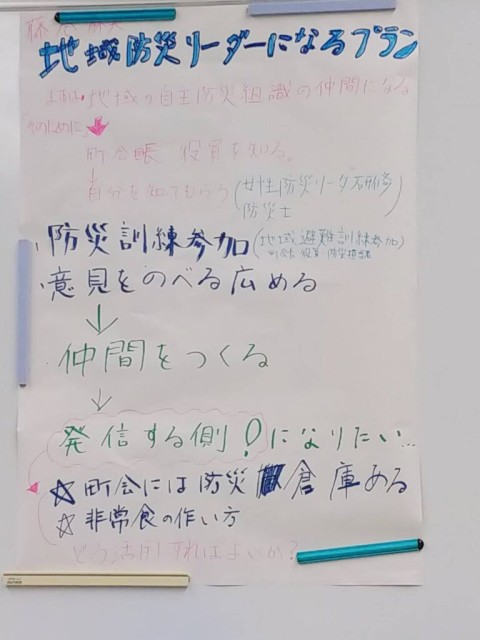 地域防災リーダーになるプラン
まずは地域の自主防災組織の仲間になる
そのために
町会長 役員を知る。
自分を知てもらう(女性防災リーダ研修
防災士)
防災訓練参加(地域避難訓練参加)
町会長 役員 防災担当
意見をのべる広める
仲間をつくる
発信する側!になりたい…
☆町会には防災倉庫ある
☆非常食の作い方
どう活用すればよいか?